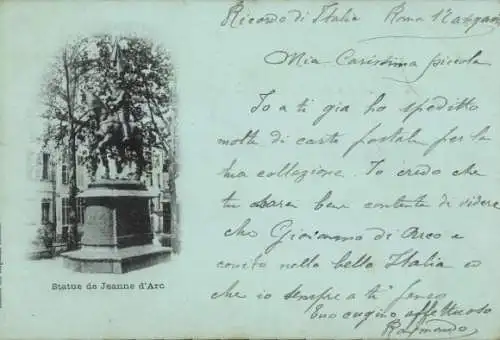 Ricordo di Italia Roma 1°
Mia Carissima piccola
Io a ti gia ho spedito
molte di carte postale per la
tua collezione. Io credo che
tu sara ben contenta di videre
che Giovanna di Arco e
conito nella bella Italia e
che io sempre a ti penso
Tuo cugino affettuoso
Raimondo
Statue de Jeanne d'Arc